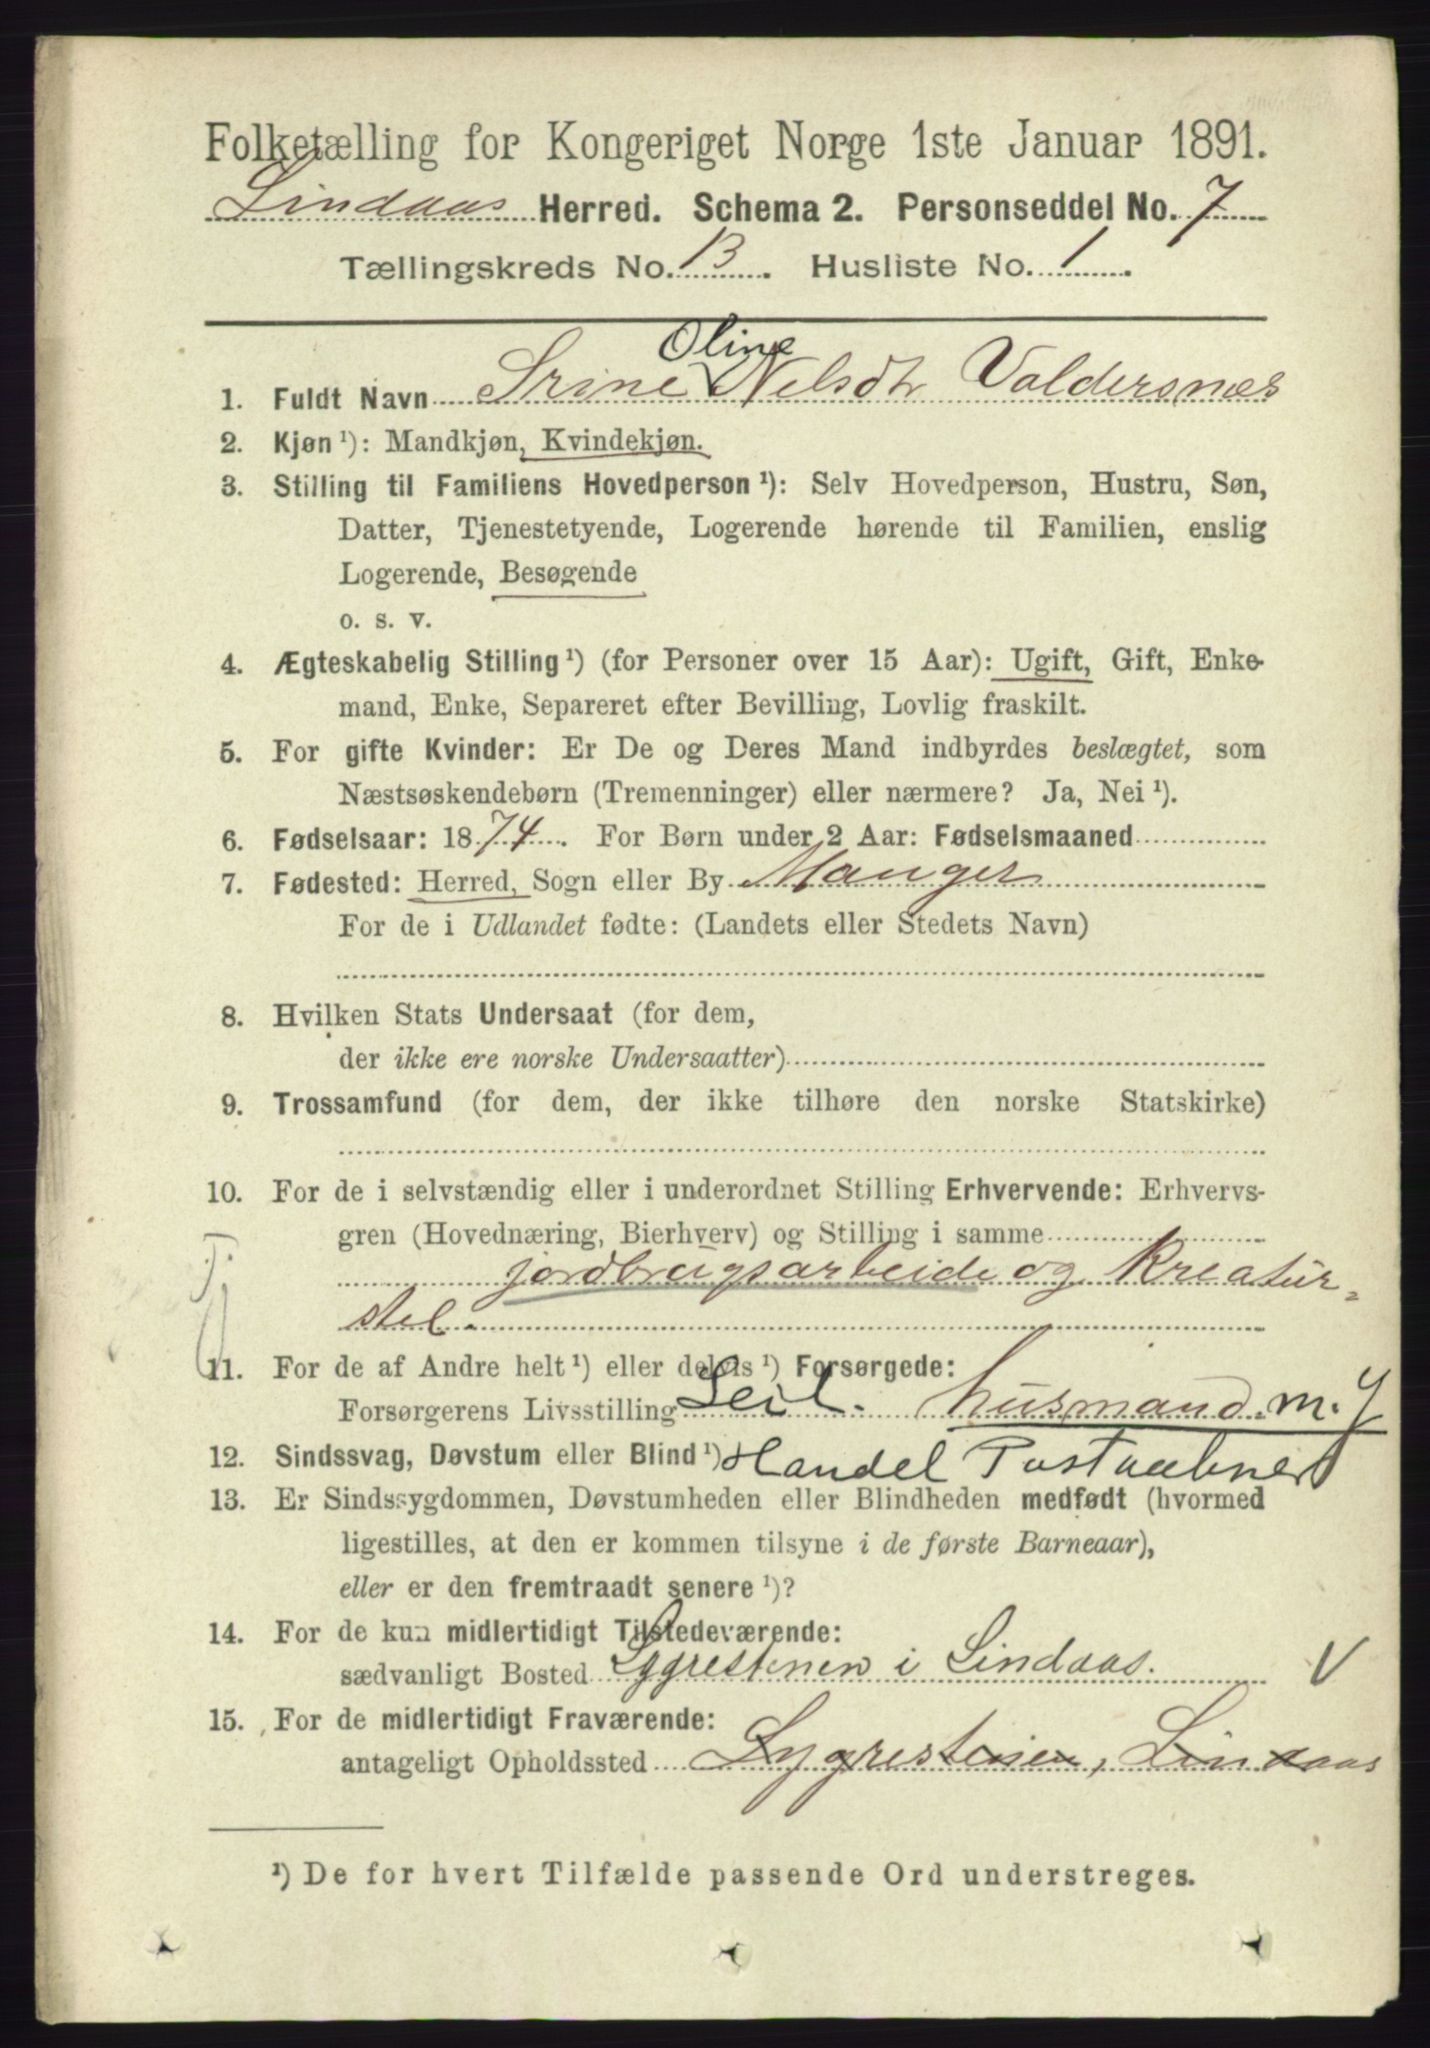 Folketælling for Kongeriget Norge 1ste Januar 1891.
Lindaas Herred. Schema 2. Personseddel No. 7
Tællingskreds No. 13. Husliste No. 1.
Oline
1. Fuldt Navn Srine Nelsdtr Valdersnes
2. Kjøn ¹): Mandkjøn, Kvindekjøn.
3. Stilling til Familiens Hovedperson ¹): Selv Hovedperson, Hustru, Søn,
Datter, Tjenestetyende, Logerende hørende til Familien, enslig
Logerende, Besøgende
o. s. v.
4. Ægteskabelig Stilling ¹) (for Personer over 15 Aar): Ugift, Gift, Enke-
mand, Enke, Separeret efter Bevilling, Lovlig fraskilt.
5. For gifte Kvinder: Er De og Deres Mand indbyrdes beslægtet, som
Næstsøskendebørn (Tremenninger) eller nærmere? Ja, Nei ¹).
6. Fødselsaar: 1874. For Børn under 2 Aar: Fødselsmaaned
7. Fødested: Herred, Sogn eller By Manger
For de i Udlandet fødte: (Landets eller Stedets Navn)
8. Hvilken Stats Undersaat (for dem,
der ikke ere norske Undersaatter)
9. Trossamfund (for dem, der ikke tilhøre den norske Statskirke)
10. For de i selvstændig eller i underordnet Stilling Erhvervende: Erhvervs-
gren (Hovednæring, Bierhverv) og Stilling i samme
jordbrugsarbeide og Kreatur-
stel.
11. For de af Andre helt ¹) eller delvis ¹) Forsørgede:
Forsørgerens Livsstilling Leil. husmand m. J
12. Sindssvag, Døvstum eller Blind ¹) Handel Postaabner
13. Er Sindssygdommen, Døvstumheden eller Blindheden medfødt (hvormed
ligestilles, at den er kommen tilsyne i de første Barneaar),
eller er den fremtraadt senere ¹)?
14. For de kun midlertidigt Tilstedeværende:
sædvanligt Bosted Lygrestenen i Lindaas. V
15. For de midlertidigt Fraværende:
antageligt Opholdssted Lygrestenen, Lindaas
¹) De for hvert Tilfælde passende Ord understreges.